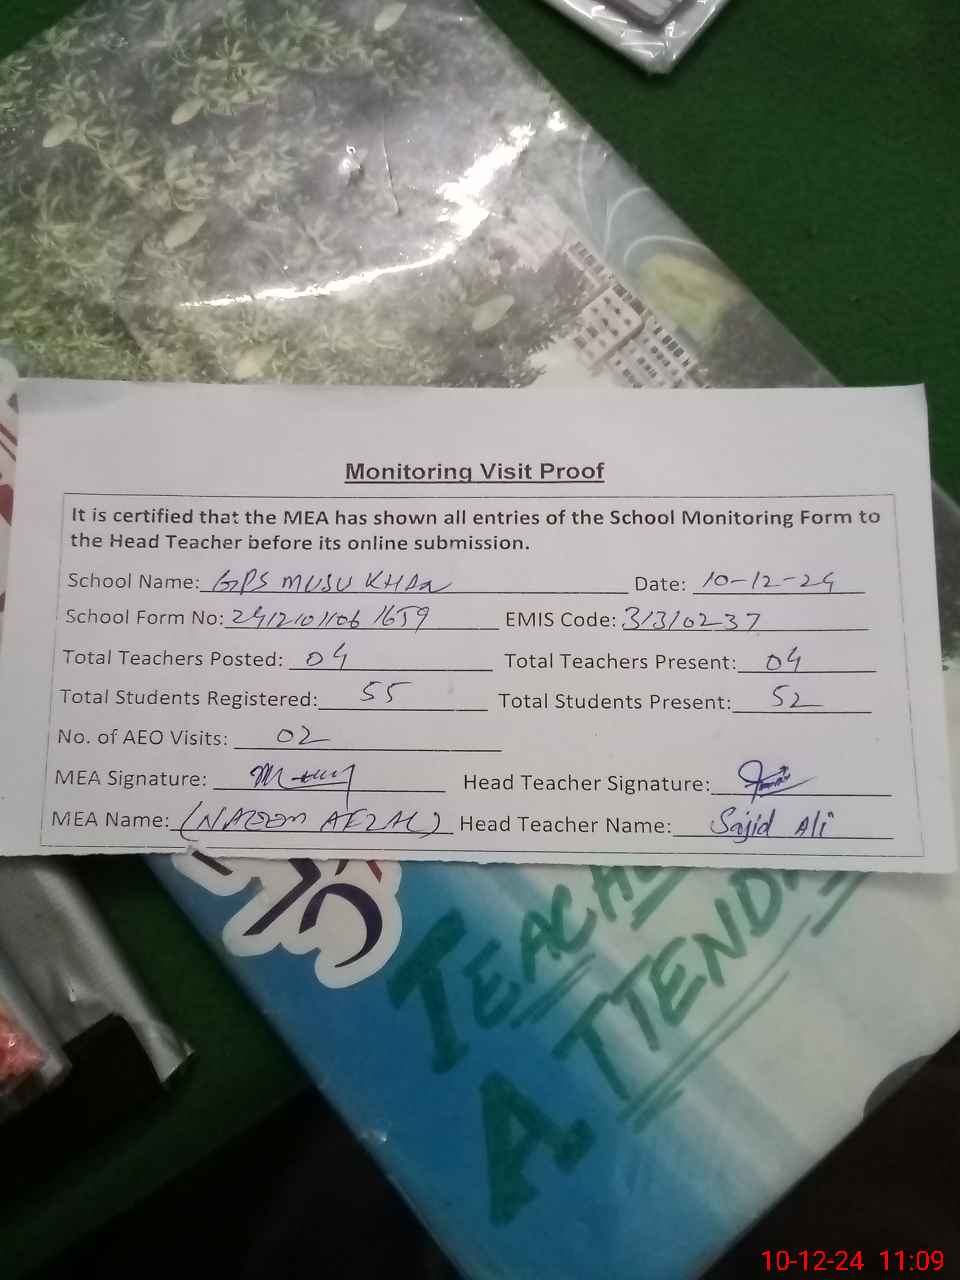 Monitoring Visit Proof
It is certified that the MEA has shown all entries of the School Monitoring Form to
the Head Teacher before its online submission.
School Name: GPS MUSU KHAN Date: 10-12-24
School Form No: 24121011061659 EMIS Code: 31310237
Total Teachers Posted: 04 Total Teachers Present: 04
Total Students Registered: 55 Total Students Present: 52
No. of AEO Visits: 02
MEA Signature: Head Teacher Signature:
MEA Name: (NAEEM AFZAL) Head Teacher Name: Sajid Ali
TEACH
ATTEND
10-12-24 11:09